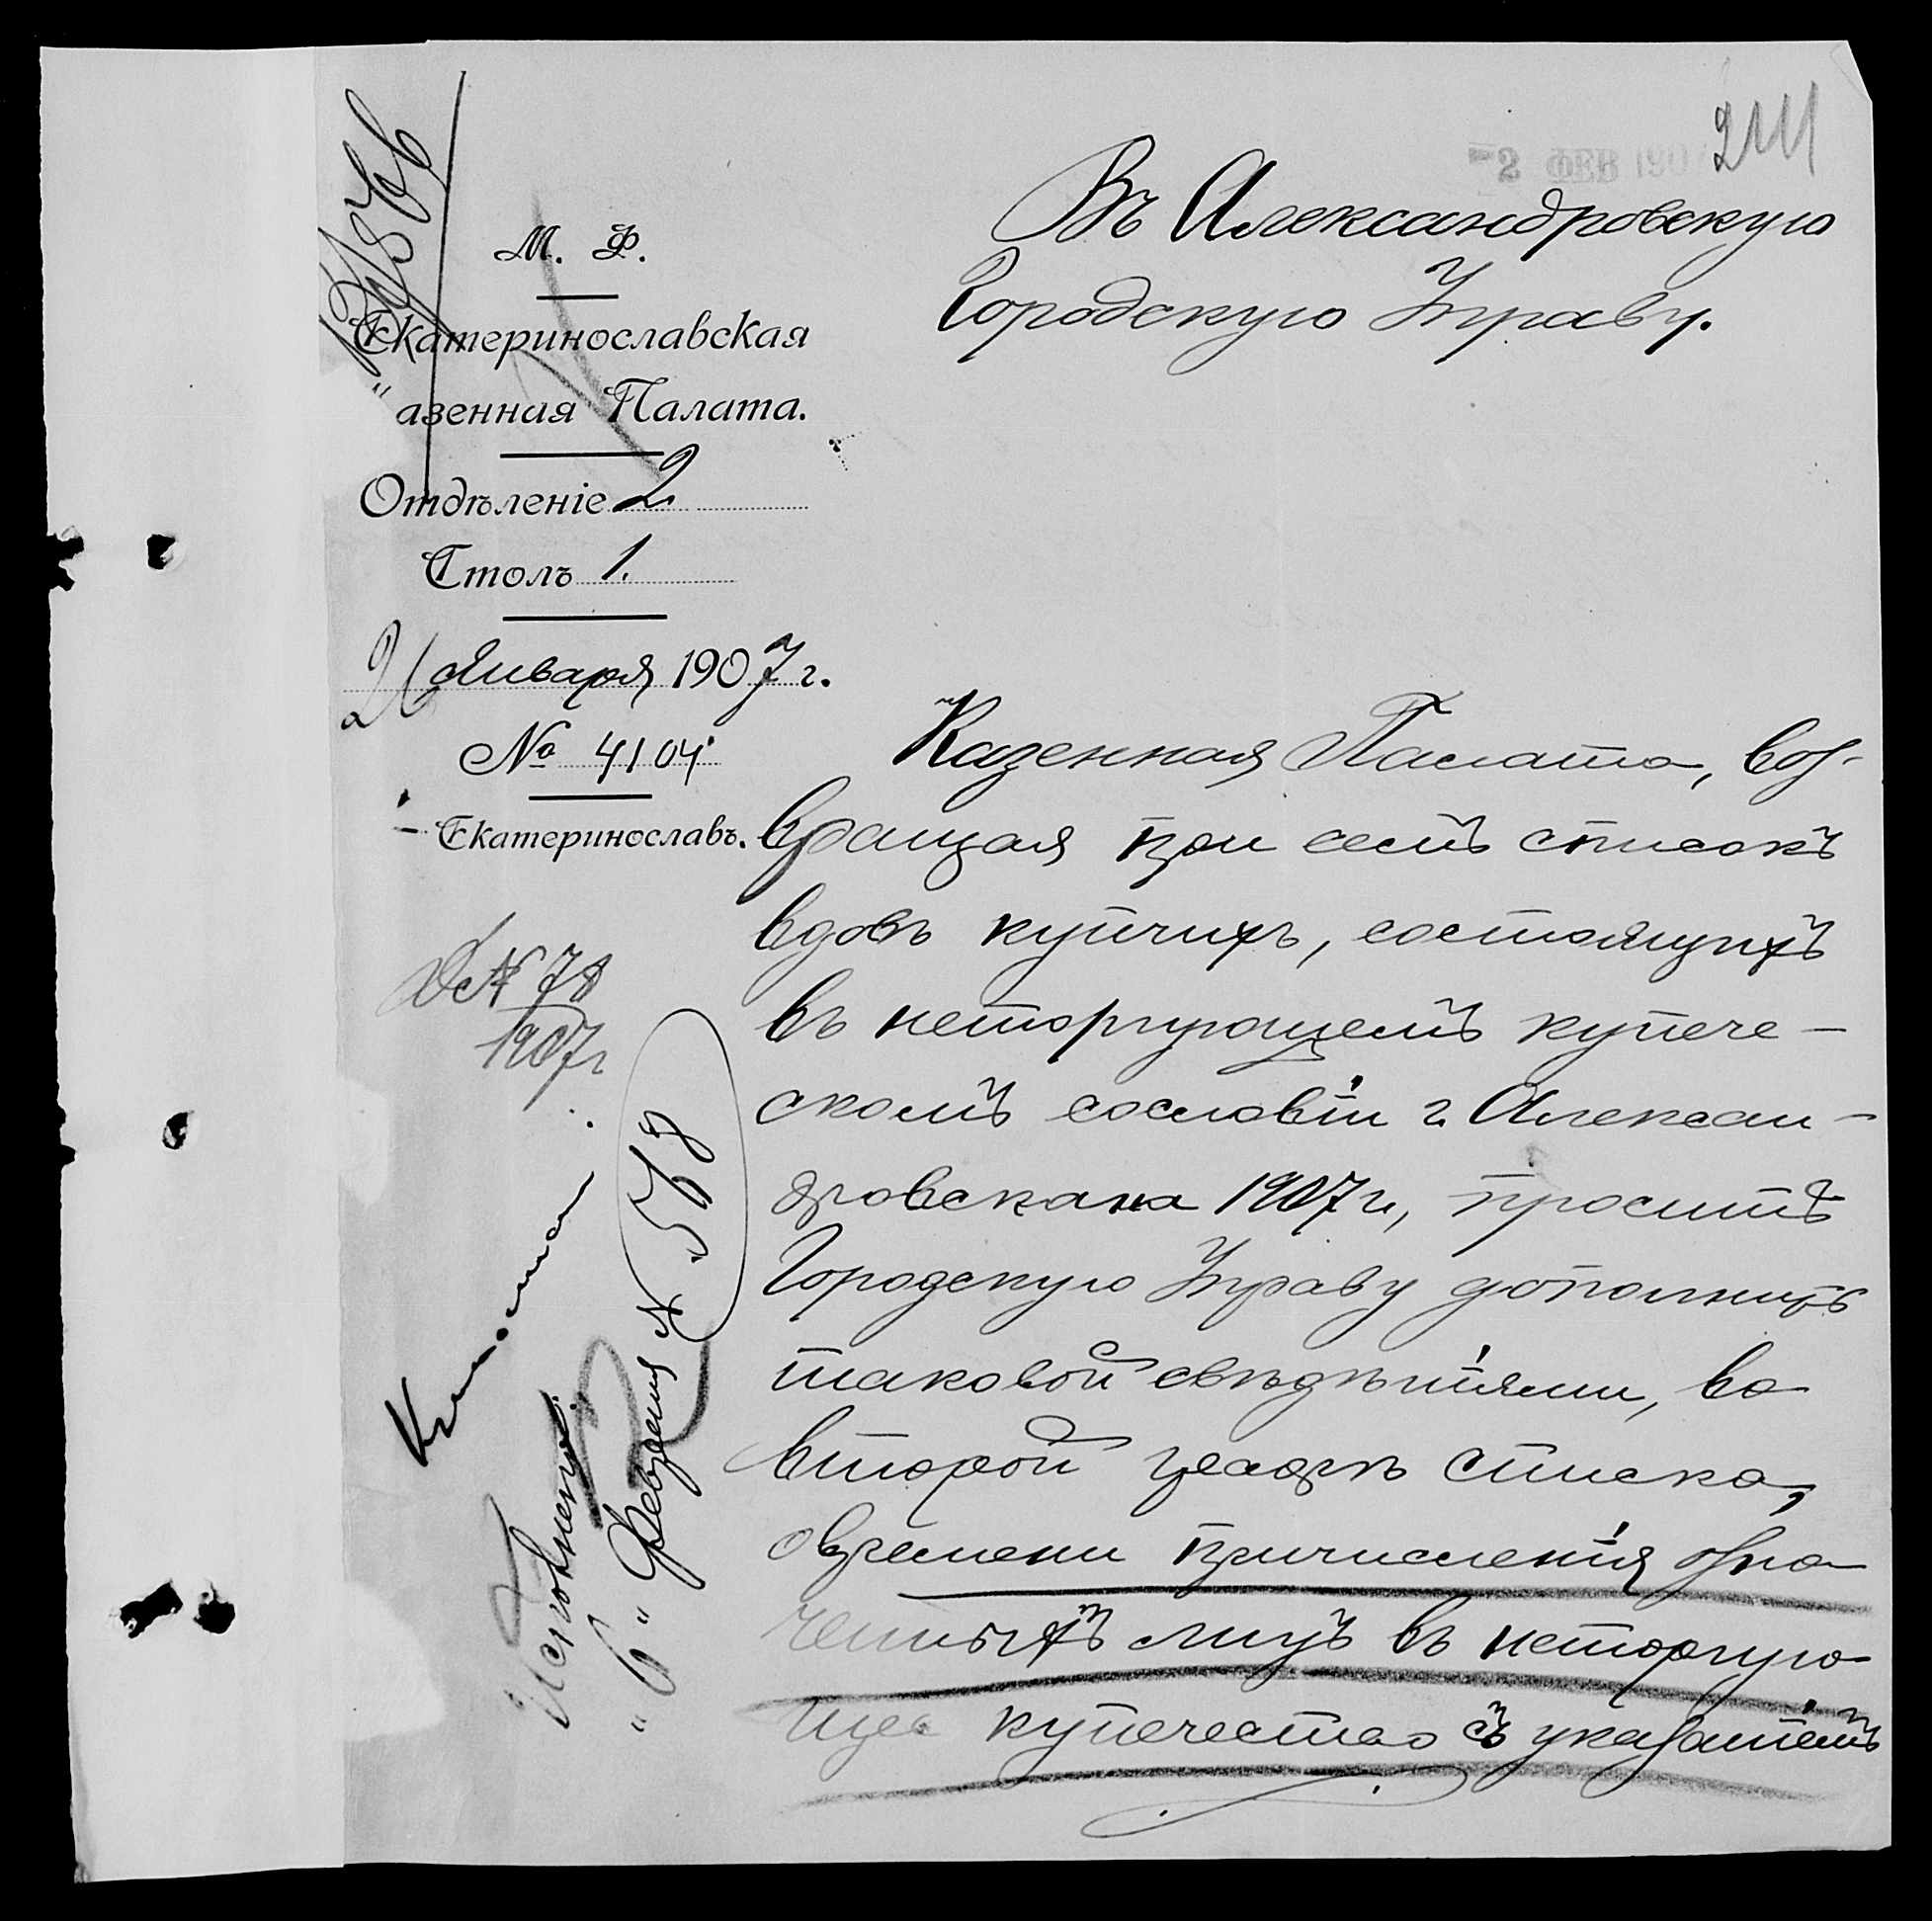 241
2 ФЕВ 1907
Въ Александровскую
Городскую Управу.
М. Ф.
Екатеринославская
азенная Палата.
Отдѣленіе 2
Столъ 1.
Января 1907 г.
№ 4104
Екатеринославъ.
Казенная Палата, воз-
вращая при семъ списокъ
вдовъ купчихъ, состоящихъ
въ неторгующемъ купече-
скомъ сословіи г. Алексан-
дровска на 1907 г., проситъ
Городскую Управу дополнить
таковой свѣдѣніями, во
второй графѣ списка,
о времени причисленія озна
ченныхъ лицъ въ неторгую-
щее купечество съ указаніемъ
Д № 78
1907 г
Исполнено
"6" Февраля № 578